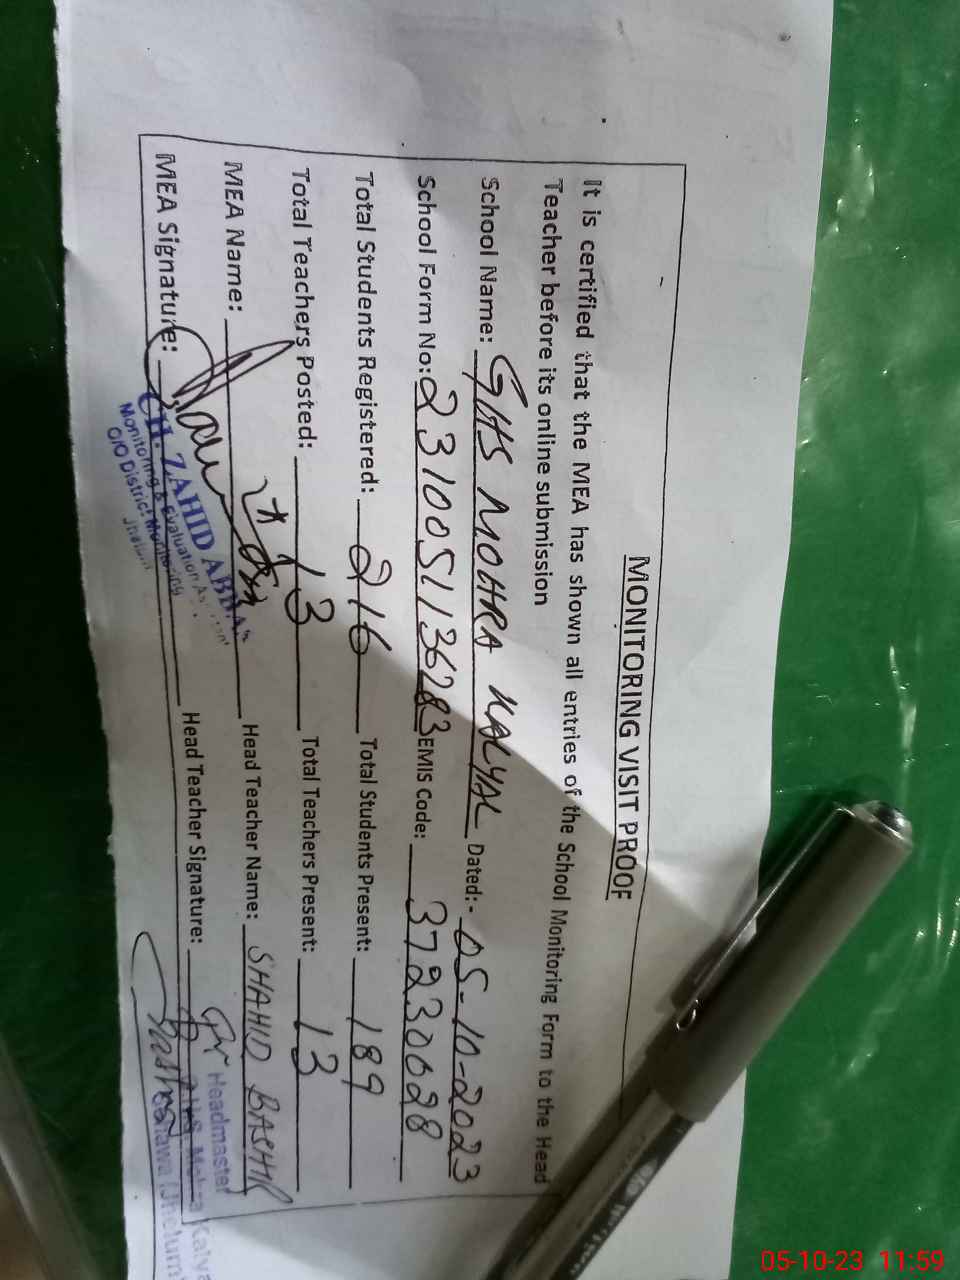 MONITORING VISIT PROOF
It is certified that the MEA has shown all entries of the School Monitoring Form to the Head
Teacher before its online submission
School Name: GHS MOHRA KALYAL Dated:- 05-10-2023
School Form No: 2310051136283 EMIS Code: 37230028
Total Students Registered: 216 Total Students Present: 189
Total Teachers Posted: 13 Total Teachers Present: 13
MEA Name: Head Teacher Name: SHAHID BASHIR
MEA Signature: Head Teacher Signature:
CH. ZAHID ABBAS
Monitoring & Evaluation
O/O District Monitoring
Jhelum
Headmaster
Mohra Kalya
(Jhelum)
05-10-23 11:59